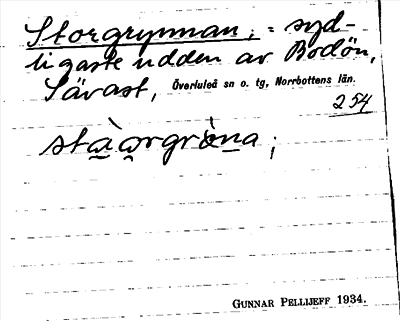 Storgrynnan; = syd-
ligaste udden av Bodön,
Sävast, Överluleå sn o. tg, Norrbottens län.
254
stàorgròna;
GUNNAR PELLIJEFF 1934.